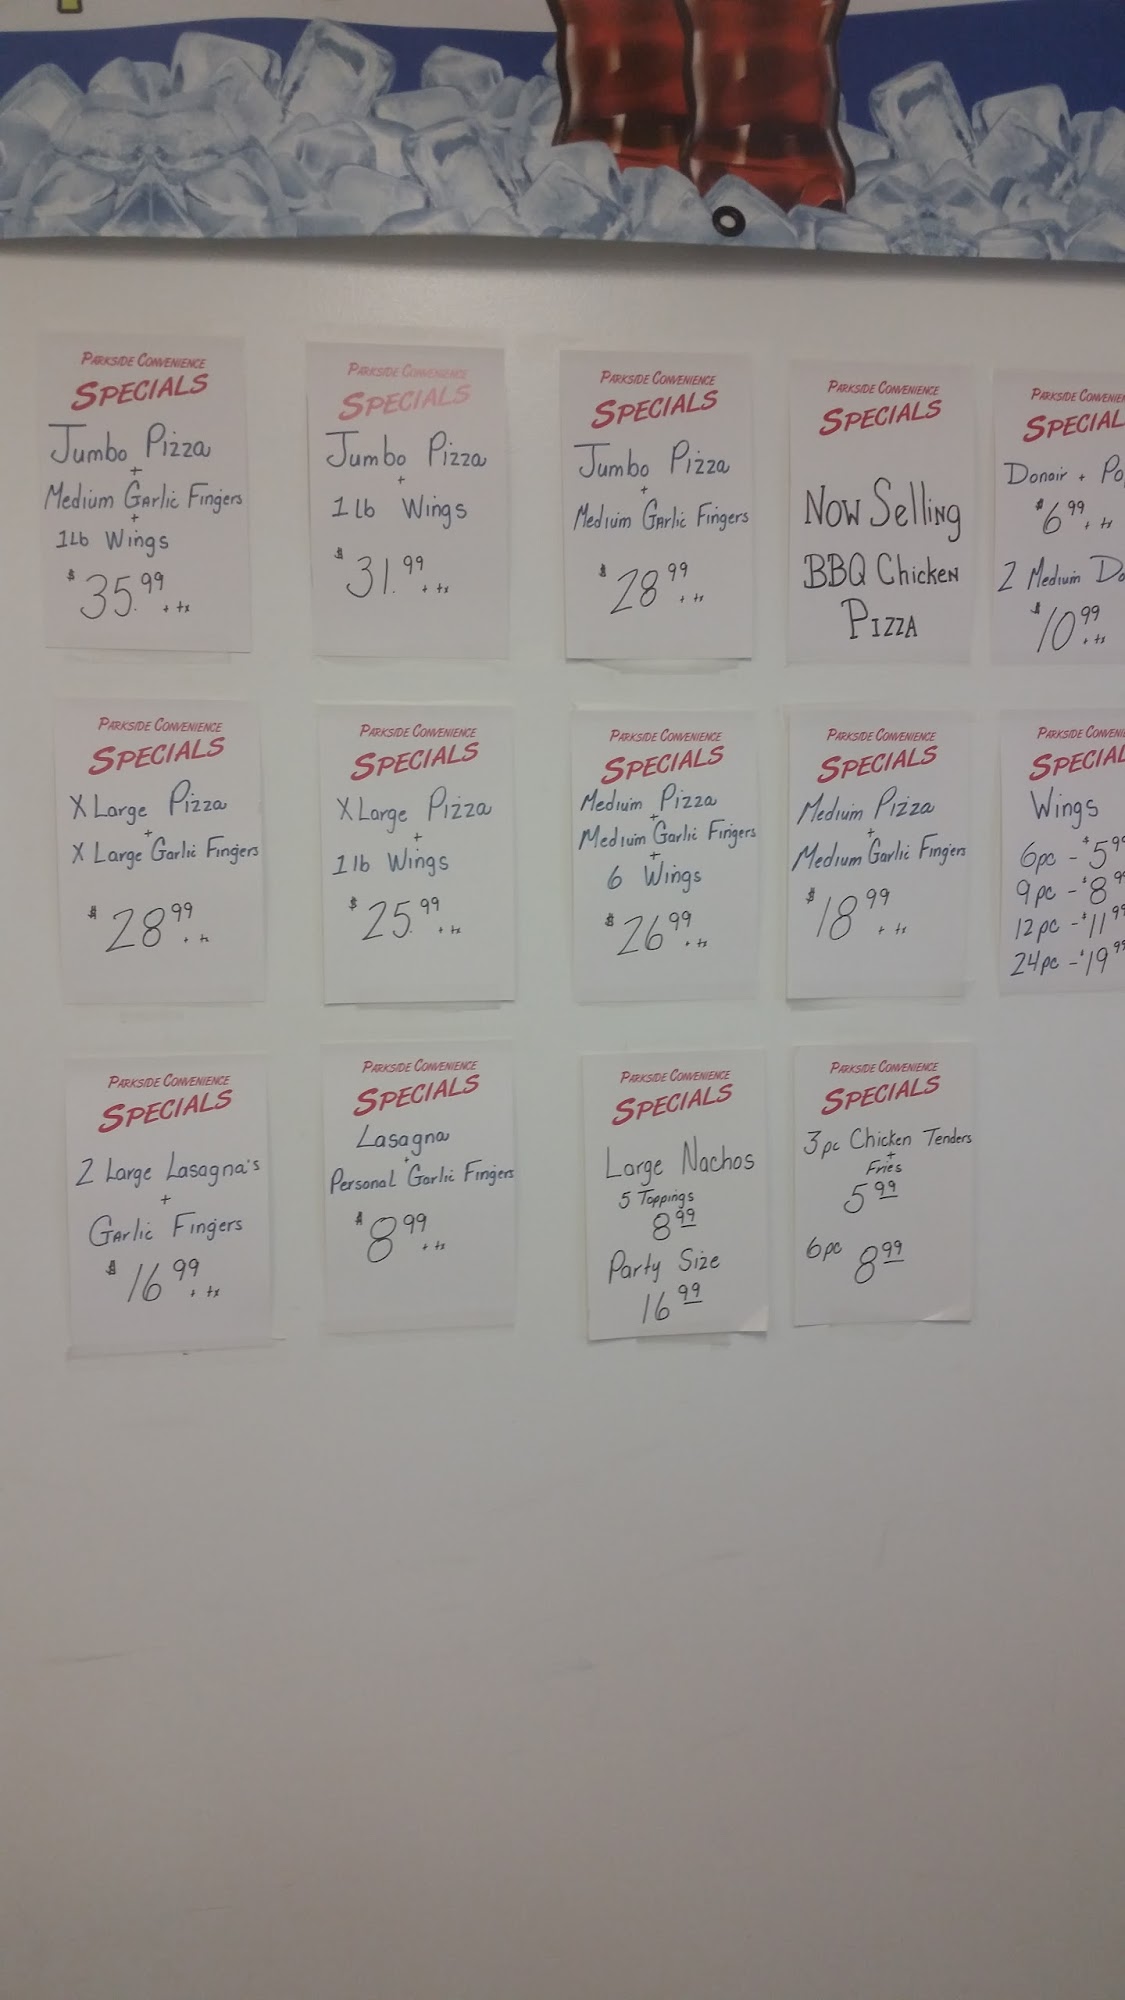 PARKSIDE CONVENIENCE
SPECIALS
Jumbo Pizza
+
Medium Garlic Fingers
+
1Lb Wings
$35.99 + tx
PARKSIDE CONVENIENCE
SPECIALS
Jumbo Pizza
+
1 lb Wings
$31.99 + tx
PARKSIDE CONVENIENCE
SPECIALS
Jumbo Pizza
+
Medium Garlic Fingers
$28.99 + tx
PARKSIDE CONVENIENCE
SPECIALS
Now Selling
BBQ Chicken
Pizza
PARKSIDE
SPECIAL
Donair +
$6.99 + tx
2 Medium
$10.99 + tx
PARKSIDE CONVENIENCE
SPECIALS
X Large Pizza
+
X Large Garlic Fingers
$28.99 + tx
PARKSIDE CONVENIENCE
SPECIALS
X Large Pizza
+
1 lb Wings
$25.99 + tx
PARKSIDE CONVENIENCE
SPECIALS
Medium Pizza
+
Medium Garlic Fingers
+
6 Wings
$26.99 + tx
PARKSIDE CONVENIENCE
SPECIALS
Medium Pizza
+
Medium Garlic Fingers
$18.99 + tx
PARKSIDE
SPECIAL
Wings
6pc - $5.99
9pc - $8.99
12pc - $11.99
24pc - $19.99
PARKSIDE CONVENIENCE
SPECIALS
2 Large Lasagna's
+
Garlic Fingers
$16.99 + tx
PARKSIDE CONVENIENCE
SPECIALS
Lasagna
+
Personal Garlic Fingers
$8.99 + tx
PARKSIDE CONVENIENCE
SPECIALS
Large Nachos
5 Toppings
8.99
Party Size
16.99
PARKSIDE CONVENIENCE
SPECIALS
3pc Chicken Tenders
+
Fries
5.99
6pc 8.99